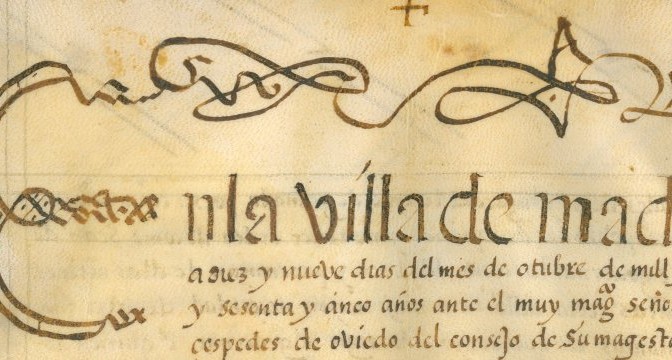 Enla villa de mad
a diez y nueve dias del mes de otubre de mill
y sesenta y cinco años ante el muy magco seño
cespedes de oviedo del consejo de Su magest